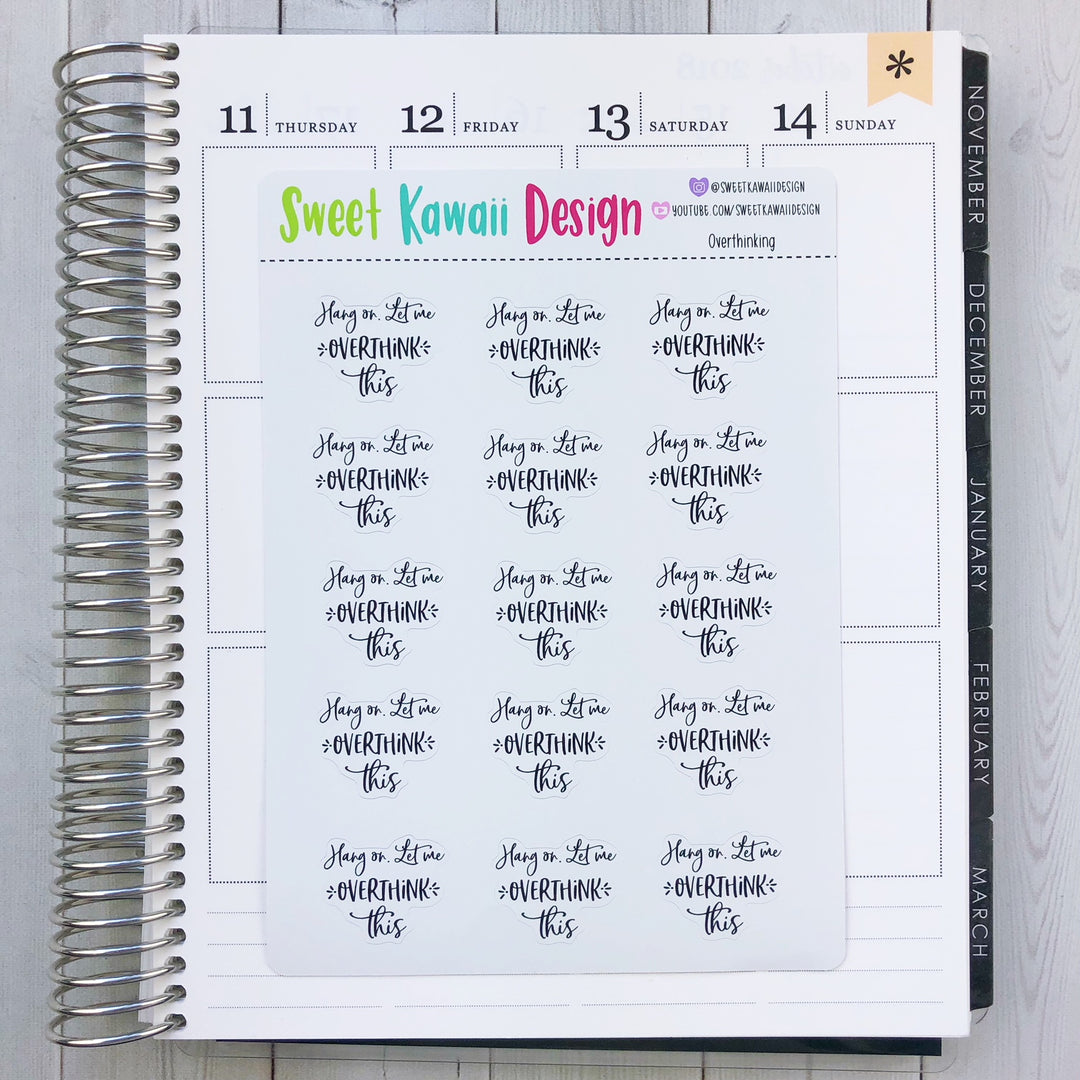 11 THURSDAY 12 FRIDAY 13 SATURDAY 14 SUNDAY
*
Sweet Kawaii Design
@SWEETKAWAIIDESIGN
YOUTUBE.COM/SWEETKAWAIIDESIGN
Overthinking
Hang on. Let me Hang on. Let me Hang on. Let me
OVERTHiNK OVERTHiNK OVERTHiNK
this this this
Hang on. Let me Hang on. Let me Hang on. Let me
OVERTHiNK OVERTHiNK OVERTHiNK
this this this
Hang on. Let me Hang on. Let me Hang on. Let me
OVERTHiNK OVERTHiNK OVERTHiNK
this this this
Hang on. Let me Hang on. Let me Hang on. Let me
OVERTHiNK OVERTHiNK OVERTHiNK
this this this
Hang on. Let me Hang on. Let me Hang on. Let me
OVERTHiNK OVERTHiNK OVERTHiNK
this this this
NOVEMBER
DECEMBER
JANUARY
FEBRUARY
MARCH